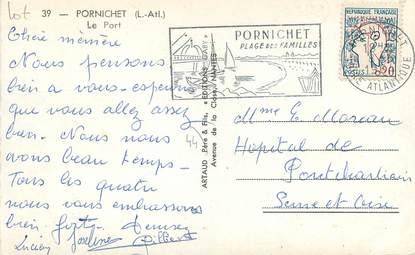 Lot 39 - PORNICHET (L.-Atl.)
Le Port
Chère mémère
Nous pensons
bien a vous - esperons
que vous allez assez
bien. Nous nous
avons beau temps -
Tous les quatre
nous vous embrassons
bien fort. Denise
Lucien Joseline Gilbert
ARTAUD Père & Fils, "EDITIONS GABY"
Avenue de la Close, NANTES
44
PORNICHET
PLAGE DES FAMILLES
REPUBLIQUE FRANÇAISE
POSTES 0,20
LOIRE ATLANTIQUE
Mme E. Moreau
Hopital de
Pontchartrain
Seine et Oise